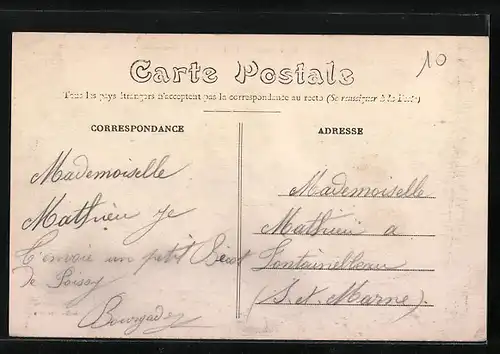 10
Carte Postale
Tous les pays étrangers n'acceptent pas la correspondance au recto (Se renseigner à la Poste)
CORRESPONDANCE
Mademoiselle
Mathieu je
t'envoie un petit
de Poissy
Bourgade
ADRESSE
Mademoiselle
Mathieu a
Fontainebleau
(S. et. Marne).